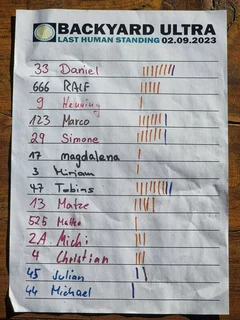 BACKYARD ULTRA
LAST HUMAN STANDING 02.09.2023
33 Daniel
666 RALF
9 Henning
123 Marco
29 Simone
17 magdalena
3 Miriam
47 Tobias
13 Matze
525
2A Michi
4 Christian
45 Julian
44 Michael